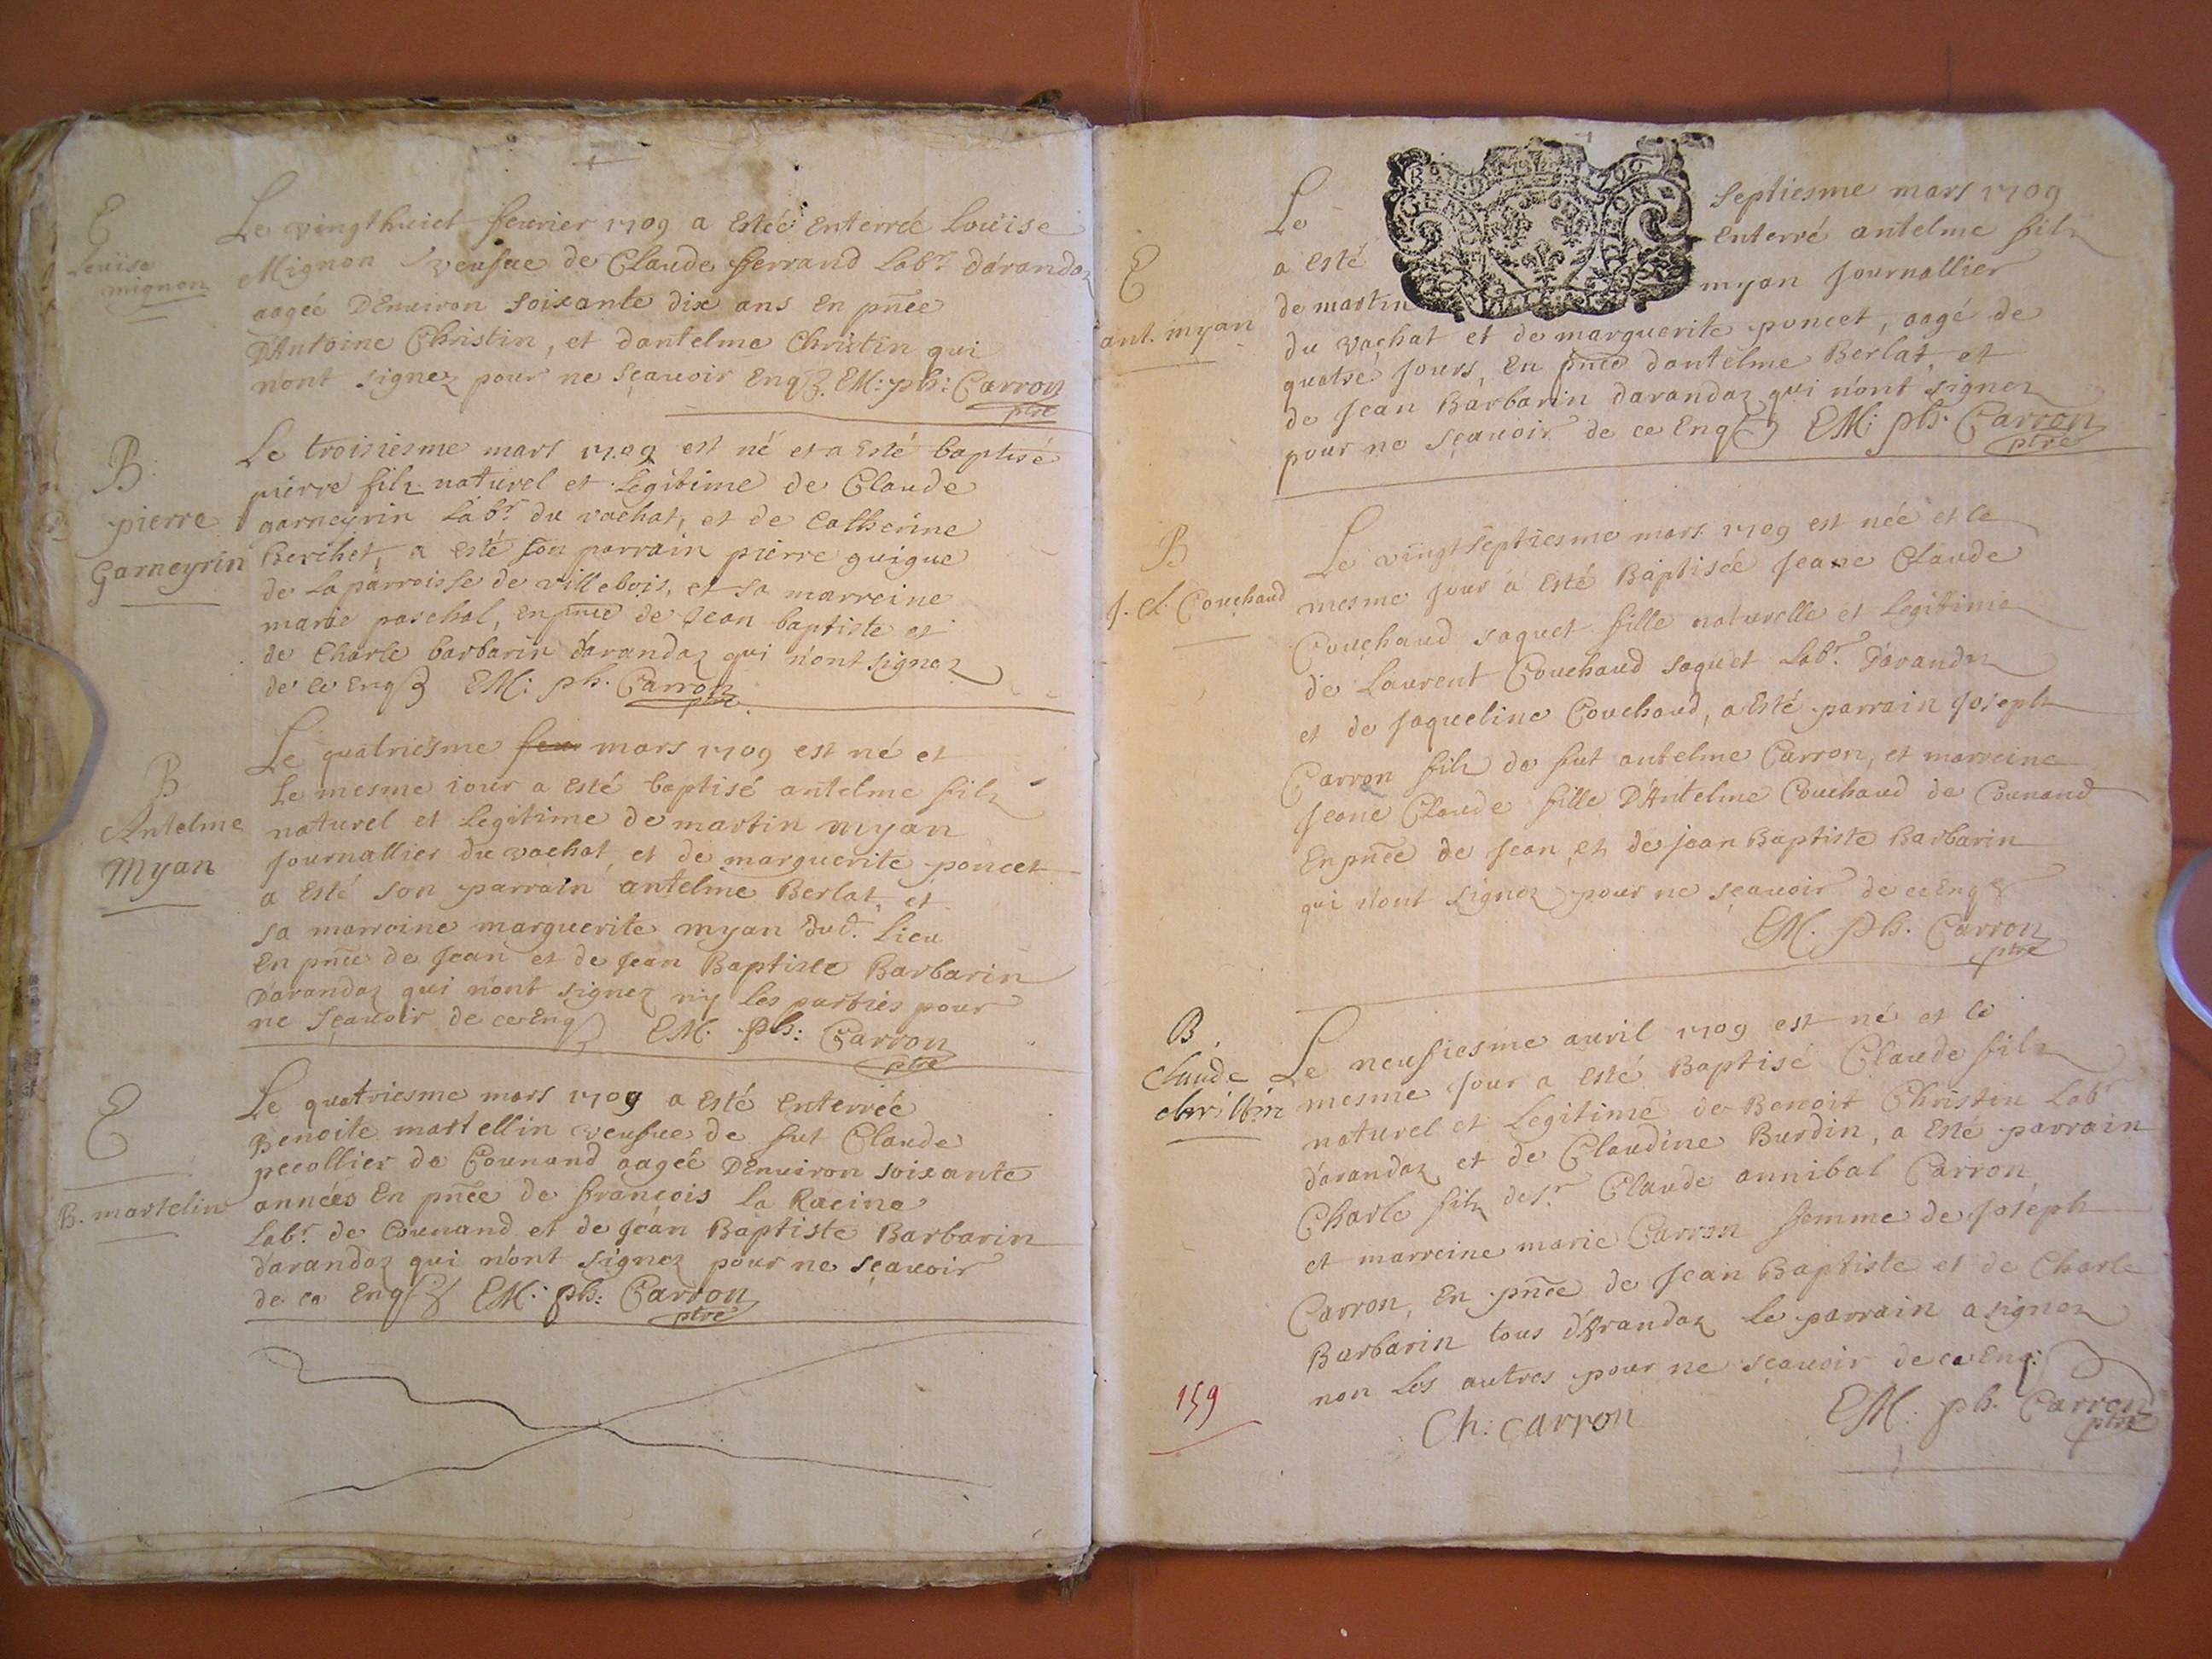 E
Louise
mignon
Le vingthuict feurier 1709 a Estée Enterreé Louise
Mignon veufue de Claude ferrand Labr. d'arandaz
aageé D'Enuiron soixante dix ans En pñce
D'Antoine Christin, et dantelme Christin qui
n'ont signez pour ne sçauoir Enq EM: ph: Carron
ptre
B
pierre
Garneyrin
Le troisiesme mars 1709 est né et a Esté baptisé
pierre filz naturel et Legitime de Claude
garneyrin Labr. du vachat, et de Catherine
Berchet, a esté son parrain pierre guigue
de La parroisse de villebois, et sa marreine
marie paschal, En pñce de Jean baptiste et
de Charle barbarin d'arandaz qui n'ont signez
de ce enq EM: ph. Carron
ptre
B
Antelme
Myan
Le quatriesme feur mars 1709 est né et
Le mesme iour a Esté baptisé antelme filz
naturel et Legitime de martin myan
Journallier du vachat, et de marguerite poncet
a Esté son parrain antelme Berlat, et
sa marreine marguerite myan dud. Lieu
En pñce de Jean et de Jean Baptiste Barbarin
D'arandaz qui n'ont signez ny les parties pour
ne sçauoir de ce Enq EM. ph: Carron
ptre
E
B. martelin
Le quatriesme mars 1709 a Esté Enterreé
Benoite martellin veufue de fut Claude
pecollier de Counand aageé D'Enuiron soixante
années En pñce de françois La Racine
Labr. de Counand et de Jean Baptiste Barbarin
d'arandaz qui n'ont signez pour ne sçauoir
de ce Enq EM: ph: Carron
ptre
E
ant. myan
Le septiesme mars 1709
a esté Enterré antelme filz
de martin myan Journallier
du vachat et de marguerite poncet, aagé de
quatre Jours, En pñce dantelme Berlat, et
de Jean Barbarin darandaz qui n'ont signez
pour ne sçauoir de ce Enq EM: ph. Carron
ptre
B
J. Cl. Couchaud
Le vingt septiesme mars 1709 est née et le
mesme Jour a Esté Baptisée Jeane Claude
Couchaud saquet fille naturelle et Legitime
de Laurent Couchaud saquet Labr. D'arandaz
et de Jaqueline Couchaud, a Esté parrain Joseph
Carron filz de fut antelme Carron, et marreine
Jeane Claude fille D'Antelme Couchaud de Counand
En pñce de Jean et de Jean Baptiste Barbarin
qui n'ont signez pour ne sçauoir de ce Enq
EM. ph. Carron
ptre
B
Claude
christin
Le neufiesme auril 1709 est né et le
mesme Jour a esté Baptisé Claude filz
naturel et Legitime de Benoit Christin Labr
d'arandaz et de Claudine Burdin, a Esté parrain
Charle filz de sr. Claude annibal Carron
et marreine marie Carron femme de Joseph
Carron, En pñce de Jean Baptiste et de Charle
Barbarin tous d'Arandaz Le parrain a signez
non Les autres pour ne sçauoir de ce Enq:
Ch: carron EM: ph. Carron
ptre
159